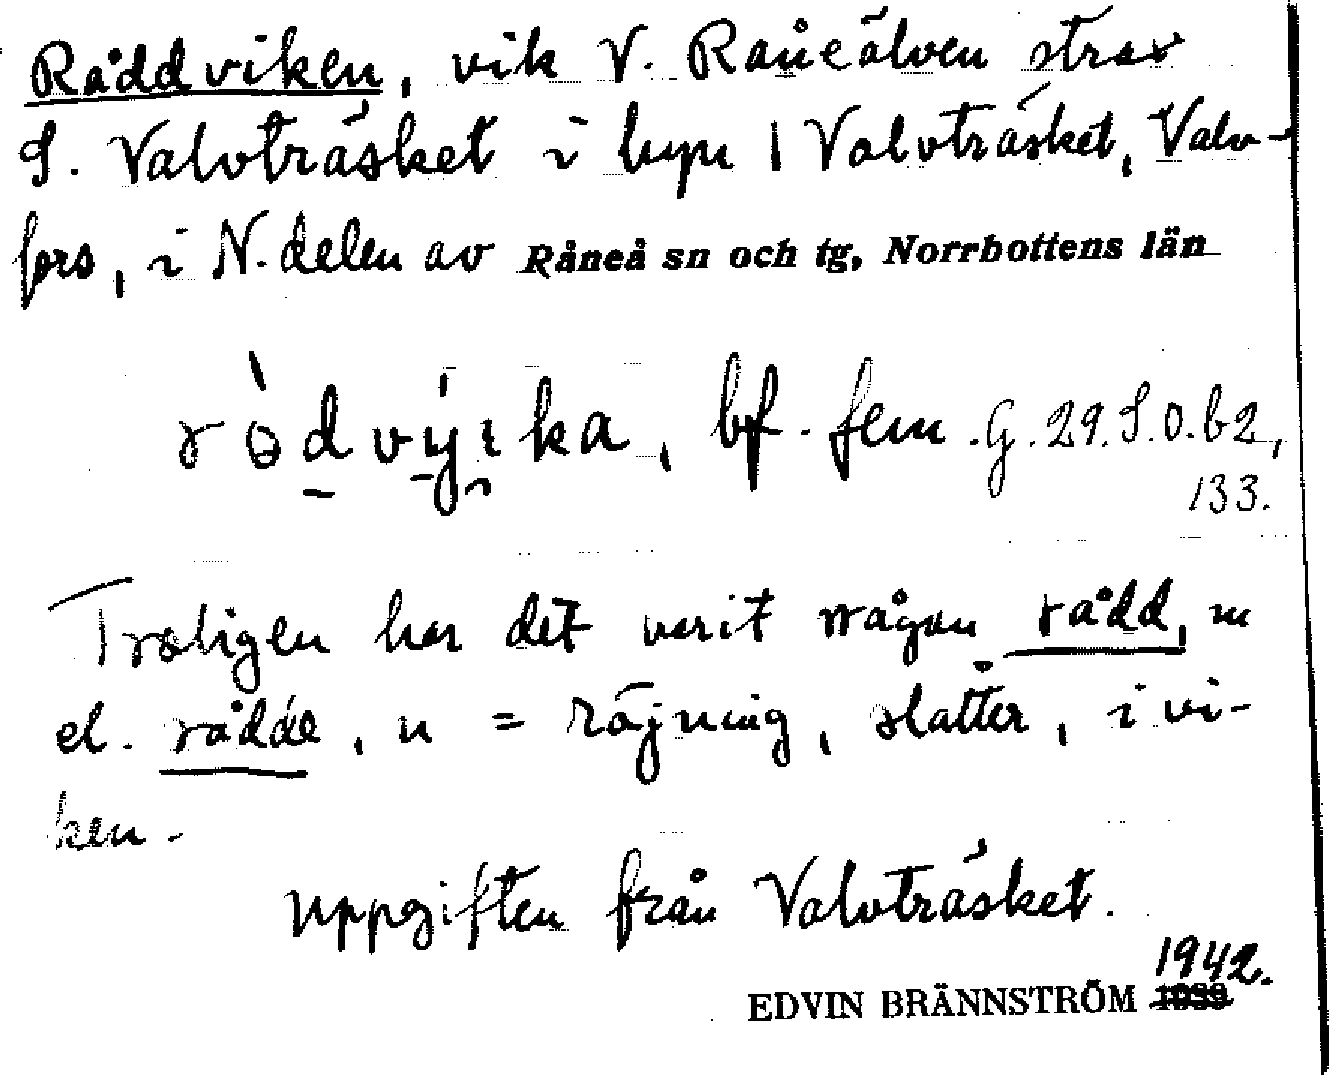 Råddviken, vik V. Råneälven strax
S. Valvträsket i byn Valvträsket, Valv-
fors, i N. delen av Råneå sn och tg, Norrbottens län
bf. fem. G. 29. S.O. b2,
133.
Troligen har det varit någon rådd, m
el. rådde, n = röjning, slåtter, i vi-
ken.
Uppgiften från Valvträsket.
1942.
EDVIN BRÄNNSTRÖM